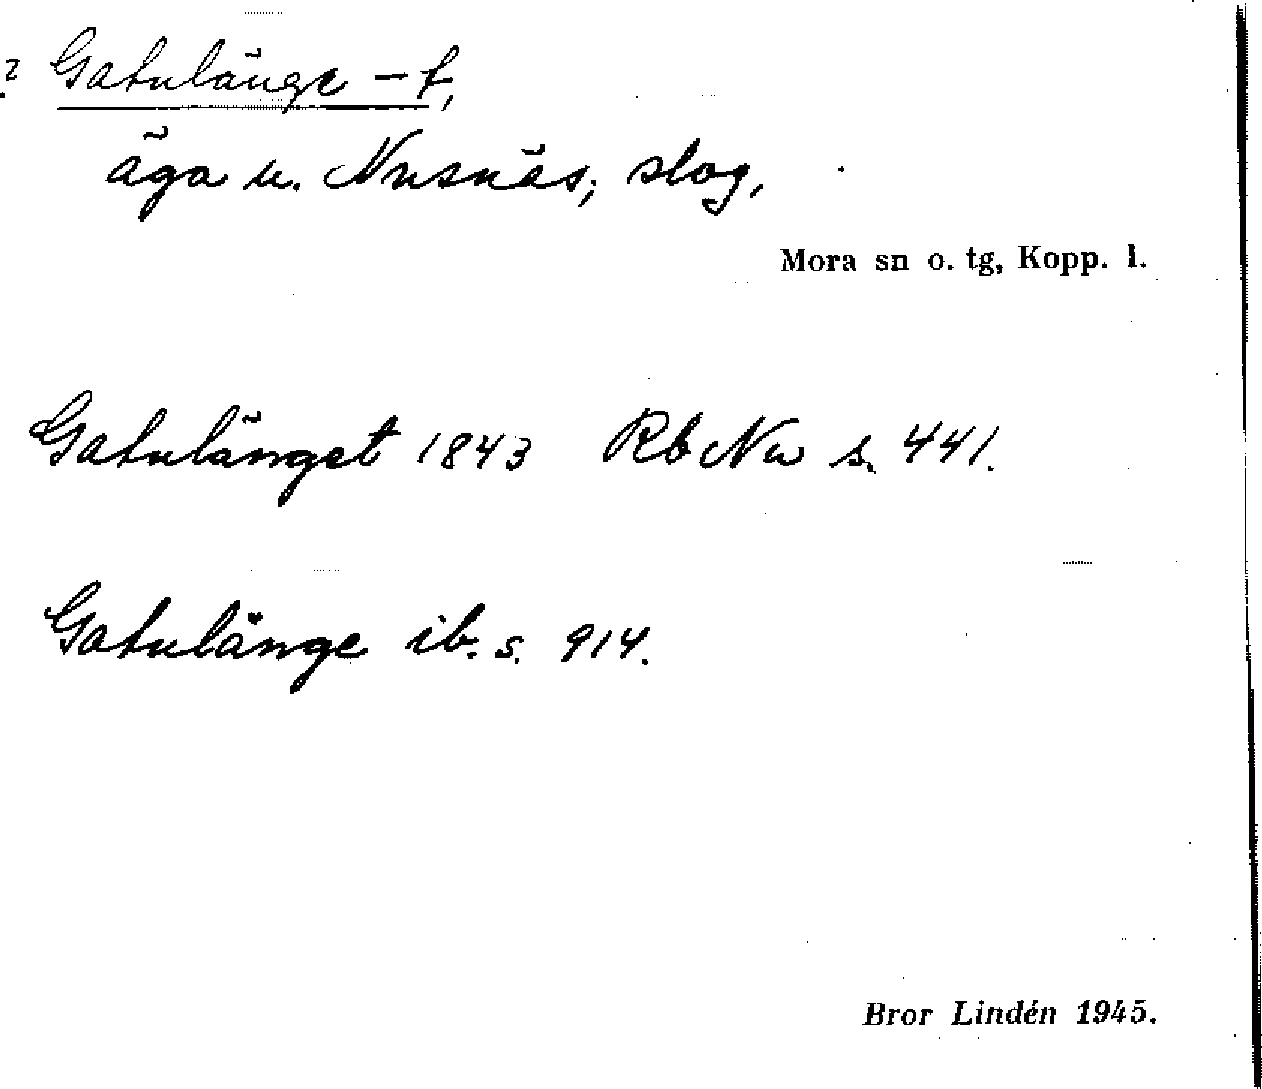 ? Gatulänge -t,
äga u. Nusnäs, slog,
Mora sn o. tg, Kopp. l.
Gatulänget 1843 Rb Nu s. 441.
Gatulänge ib. s. 914.
Bror Lindén 1945.